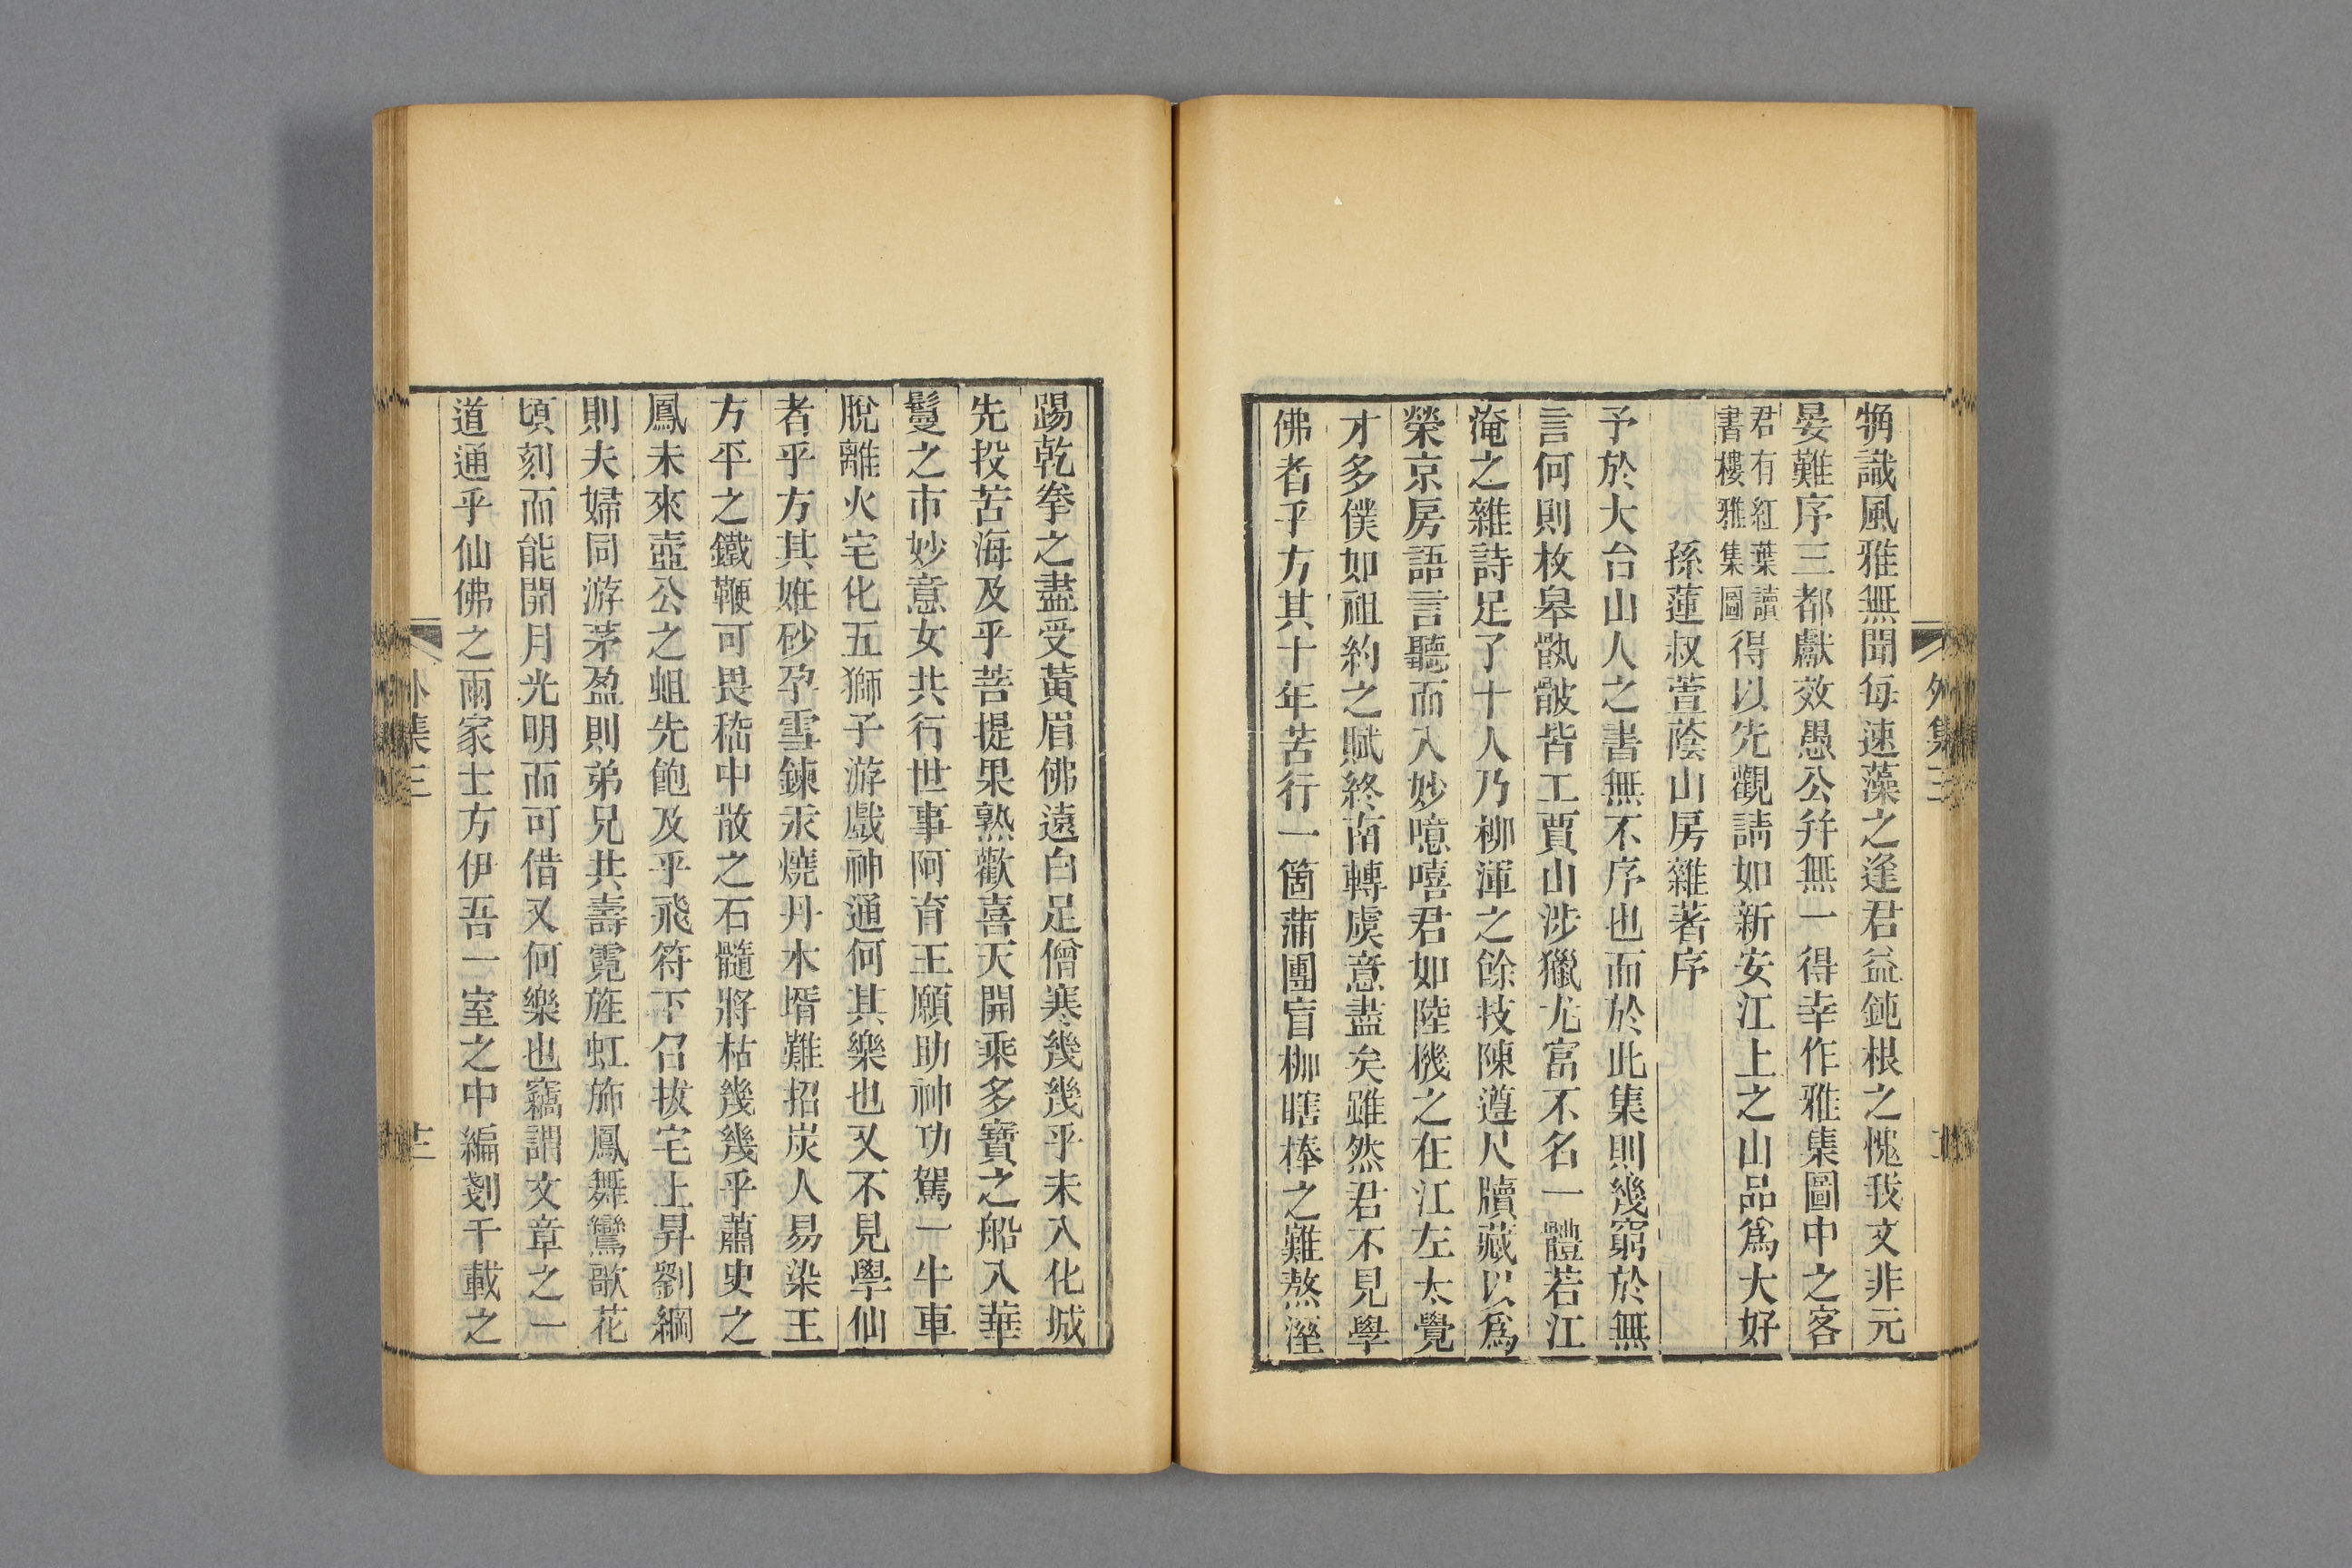 觕識風雅無聞每速藻之逢君益鈍根之愧我文非元
晏難序三都獻效愚公幷無一得幸作雅集圖中之客
君有紅葉讀
書樓雅集圖
得以先觀請如新安江上之山品爲大好
孫蓮叔萱蔭山房雜著序
予於大台山人之書無不序也而於此集則幾窮於無
言何則枚皋骫骳皆工賈山涉獵尤富不名一體若江
淹之雜詩足了十人乃柳渾之餘技陳遵尺牘藏以爲
榮京房語言聽而入妙噫嘻君如陸機之在江左太覺
才多僕如祖約之賦終南轉虞意盡矣雖然君不見學
佛者乎方其十年苦行一箇蒲團盲枷瞎棒之難熬溼
踢乾拳之盡受黃眉佛遠白足僧寒幾幾乎未入化城
先投苦海及乎菩提果熟歡喜天開乘多寶之船入華
鬘之市妙意女共行世事阿育王願助神功駕一牛車
脫離火宅化五獅子游戲神通何其樂也又不見學仙
者乎方其姙砂孕雪鍊汞燒丹木壻難招炭人易染王
方平之鐵鞭可畏嵇中散之石髓將枯幾幾乎蕭史之
鳳未來壺公之蛆先飽及乎飛符下召拔宅上昇劉綱
則夫婦同游茅盈則弟兄共壽霓旌虹旆鳳舞鸞歌花
頃刻而能開月光明而可借又何樂也竊謂文章之一
道通乎仙佛之兩家士方伊吾一室之中編剗千載之
外集三